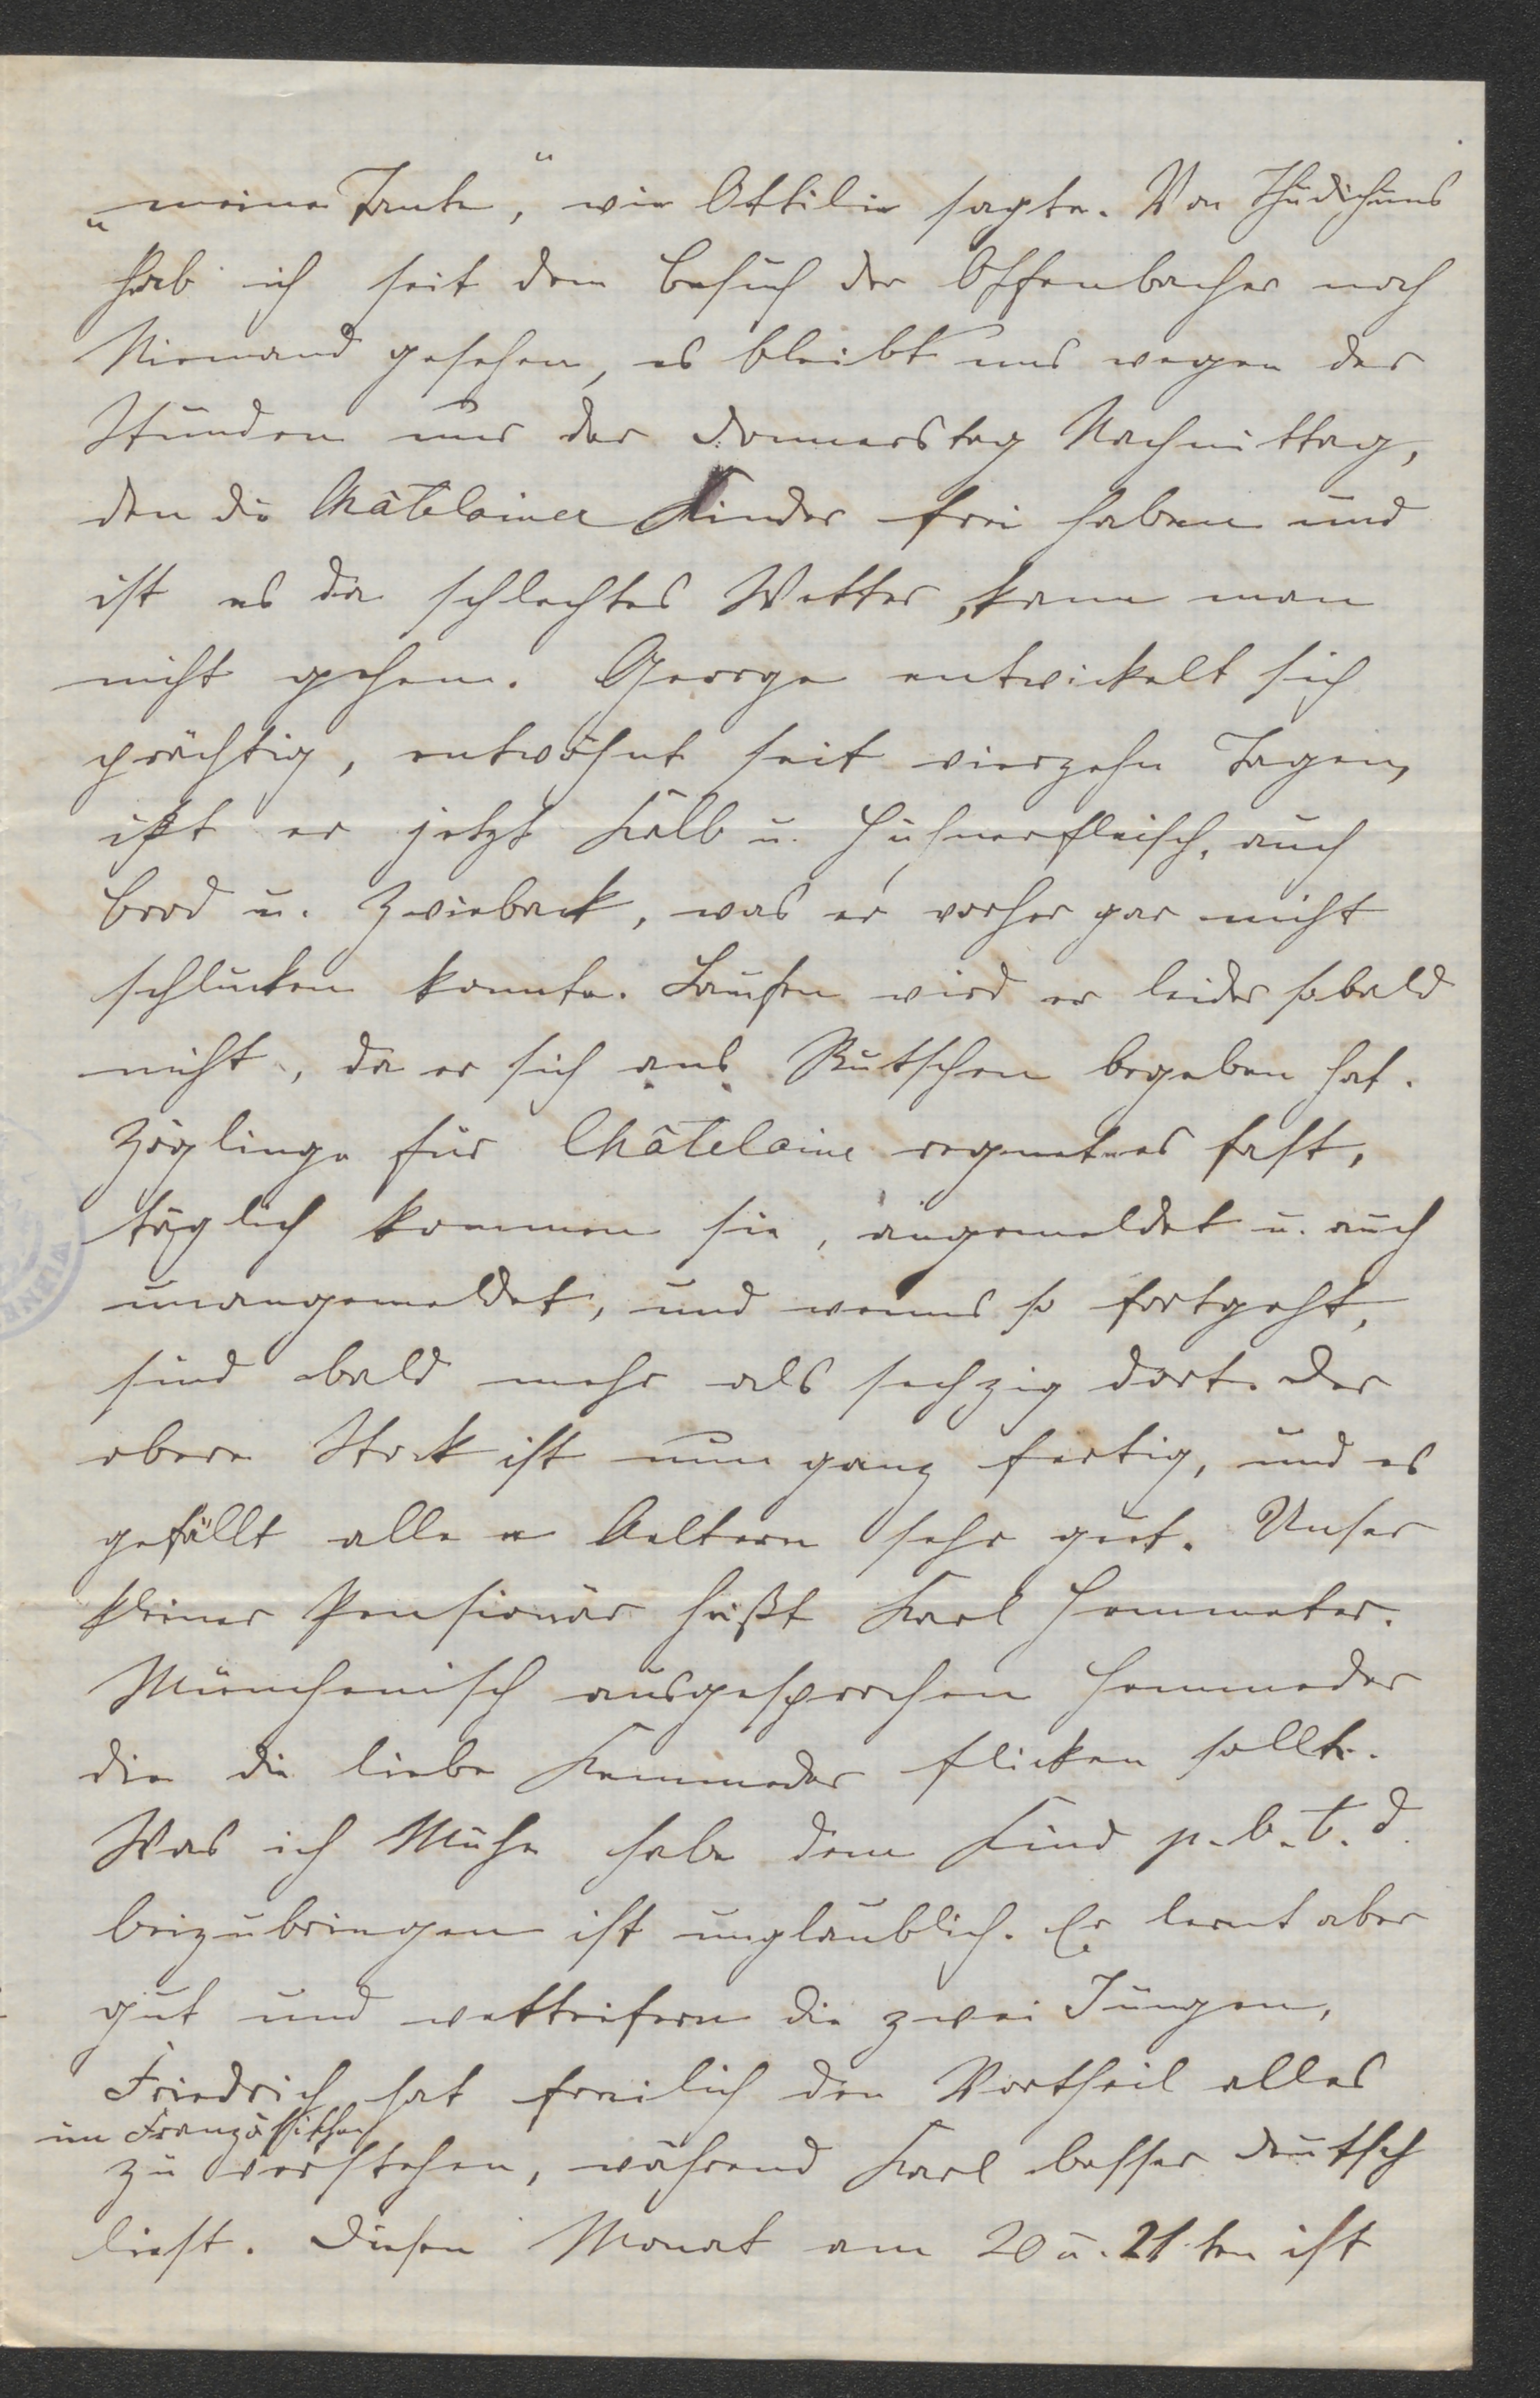 „meine Tante,“ wie Ottilie sagte. Von Thudichums
hab ich seit dem Besuch der Offenbacher noch
Niemand gesehen, es bleibt uns wegen der
Stunden nur der Donnerstag Nachmittag,
den die Châtelainer Kinder frei haben und
ist es da schlechtes Wetter, kann man
nicht gehen. George entwickelt sich
prächtig, entwöhnt seit vierzehn Tagen,
ißt er jetzt Kalb u. Hühnerfleisch, auch
Brod u. Zwieback, was er vorher gar nicht
schlucken konnte. Laufen wird er leider sobald
nicht, da er sich ans Rutschen begeben hat.
Zöglinge für Châtelaine regnet es fast,
täglich kommen sie, angemeldet u. auch
unangemeldet, und wenns so fortgeht,
sind bald mehr als sechzig dort. Der
obere Stock ist nun ganz fertig, und es
gefällt allen Aeltern sehr gut. Unser
kleiner Pensionär heißt Karl Hemmeter.
Münchenisch ausgesprochen Hemmeder
die die liebe Hemmeder flicken sollte.
Was ich Mühe habe dem Kind p. b. t. d.
beizubringen ist unglaublich. Er lernt aber
gut und wetteifern die zwei Jungen,
Friedrich hat freilich den Vortheil alles
im Französischen
zu verstehen, während Karl besser deutsch
liest. Diesen Monat am 20 u. 21ten ist